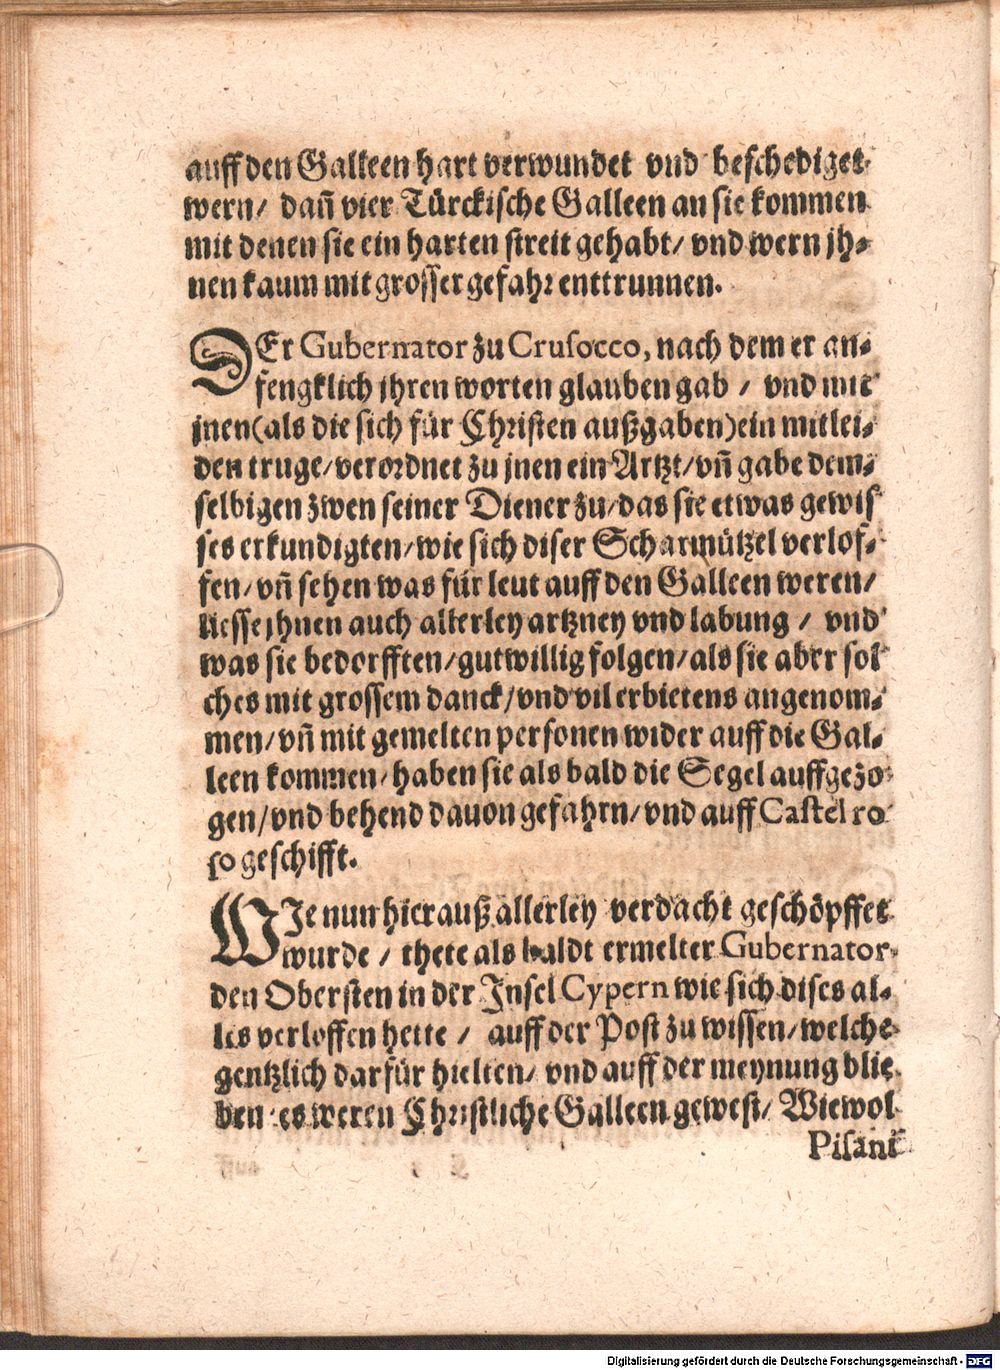 auff den Galleen hart verwundet vnd beschediget
wern/ dañ vier Türckische Galleen an sie kommen
mit denen sie ein harten streit gehabt/ vnd wern jh-
nen kaum mit grosser gefahr enttrunnen.
DEr Gubernator zu Crusocco, nach dem er an-
fengklich jhren worten glauben gab / vnd mit
jnen (als die sich für Christen außgaben) ein mitlei-
den truge/ verordnet zu jnen ein Artzt/ vñ gabe dem-
selbigen zwen seiner Diener zu/ das sie etwas gewis
ses erkundigten/ wie sich diser Scharmützel verlof-
fen/ vñ sehen was für leut auff den Galleen weren/
liesse jhnen auch allerley artzney vnd labung / vnd
was sie bedorfften/ gutwillig folgen/ als sie aber sol
ches mit grossem danck/ vnd vil erbietens angenom-
men/ vñ mit gemelten personen wider auff die Gal-
leen kommen/ haben sie als bald die Segel auffgezo-
gen/ vnd behend dauon gefahrn/ vnd auff Castel ro
so geschifft.
WIe nun hierauß allerley verdacht geschöpffet
wurde / thete als baldt ermelter Gubernator
den Obersten in der Insel Cypern wie sich dises al-
les verloffen hette / auff der Post zu wissen/ welche
gentzlich darfür hielten/ vnd auff der meynung blie
ben es weren Christliche Galleen gewest/ Wiewol
Pisani
Digitalisierung gefördert durch die Deutsche Forschungsgemeinschaft - DFG